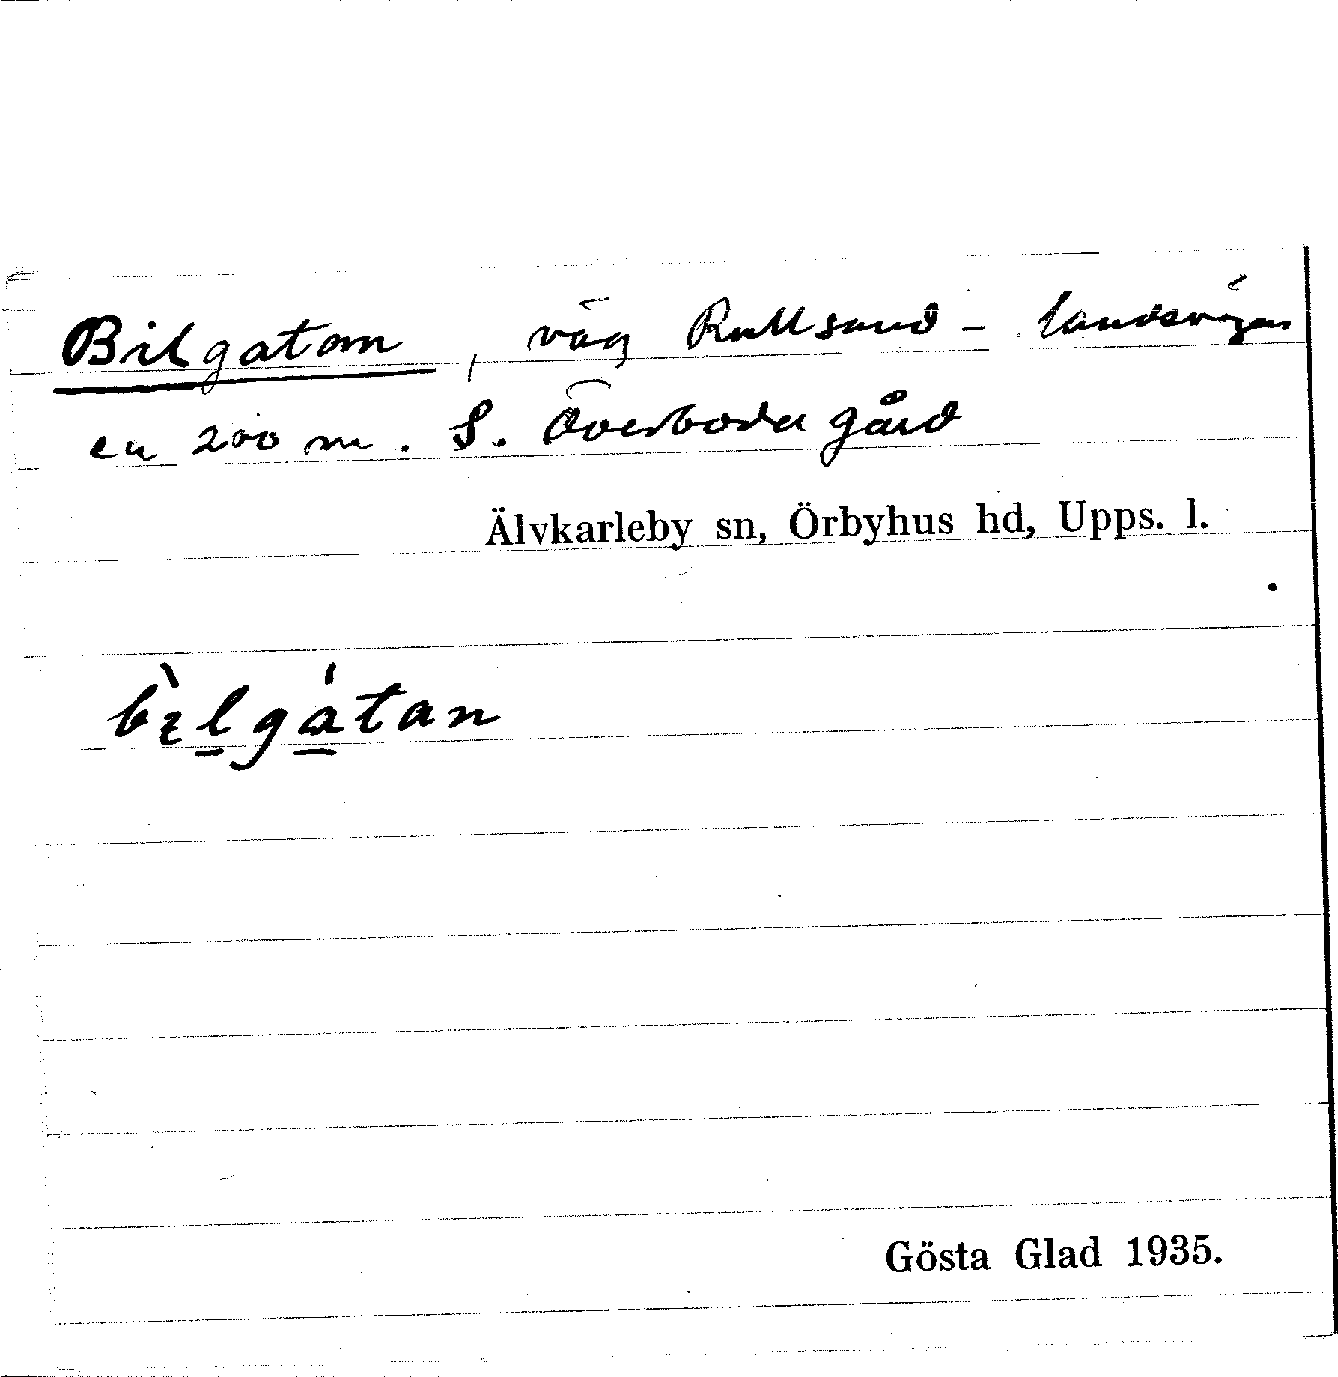 Bilgatan, väg Rullsand - landsvägen
ca 200 m. S. Överboda gård
Älvkarleby sn, Örbyhus hd, Upps. l.
bɪ̀lgátan
Gösta Glad 1935.